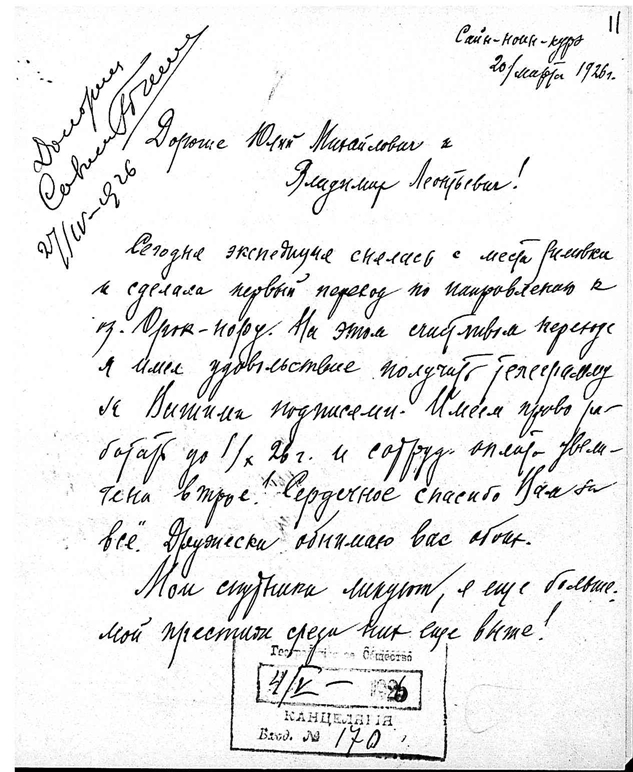 11
Сайн-ноин-курэ
20/марта 1926 г.
27/IV-1926
Дорогие Юлий Михайлович и
Владимир Леонтьевич!
Сегодня экспедиция снялась с места зимовки
и сделала первый переход по направлению к
оз. Орок-нору. На этом счастливом переходе
я имел удовольствие получить телеграмму
за Вашими подписями. Имеем право ра-
ботать до 1/X 26 г. и сотруд. оплата увели-
чена втрое! Сердечное спасибо Вам за
всё. Дружески обнимаю вас обоих.
Мои спутники ликуют, я еще больше.
мой престиж среди них еще выше!
Общество
4/V - 1926
КАНЦЕЛЯРІЯ
Вход. № 170